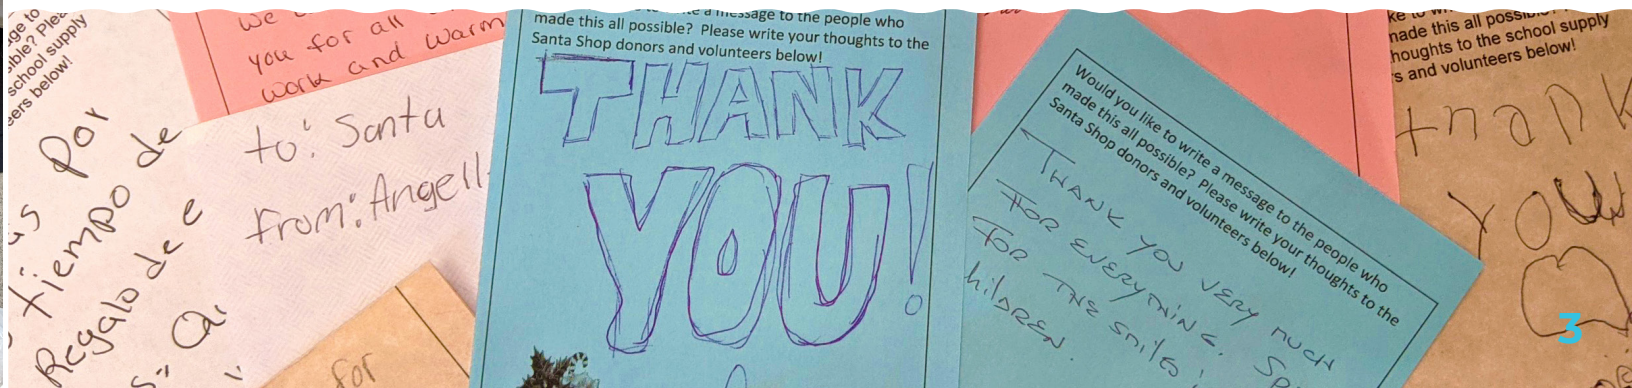 age to
sible? Plea
school supply
ers below!
Por
tiempo de
Regalo de e
we
you for all
work and warm
to: Santa
From: Angell
for
message to the people who
made this all possible? Please write your thoughts to the
Santa Shop donors and volunteers below!
THANK
YOU!
Would you like to write a message to the people who
made this all possible? Please write your thoughts to the
Santa Shop donors and volunteers below!
THANK YOU VERY MUCH
FOR EVERYTHING. SP
FOR THE SMILES
hILDREN.
made this all possible?
houghts to the school supply
s and volunteers below!
thank
you
3